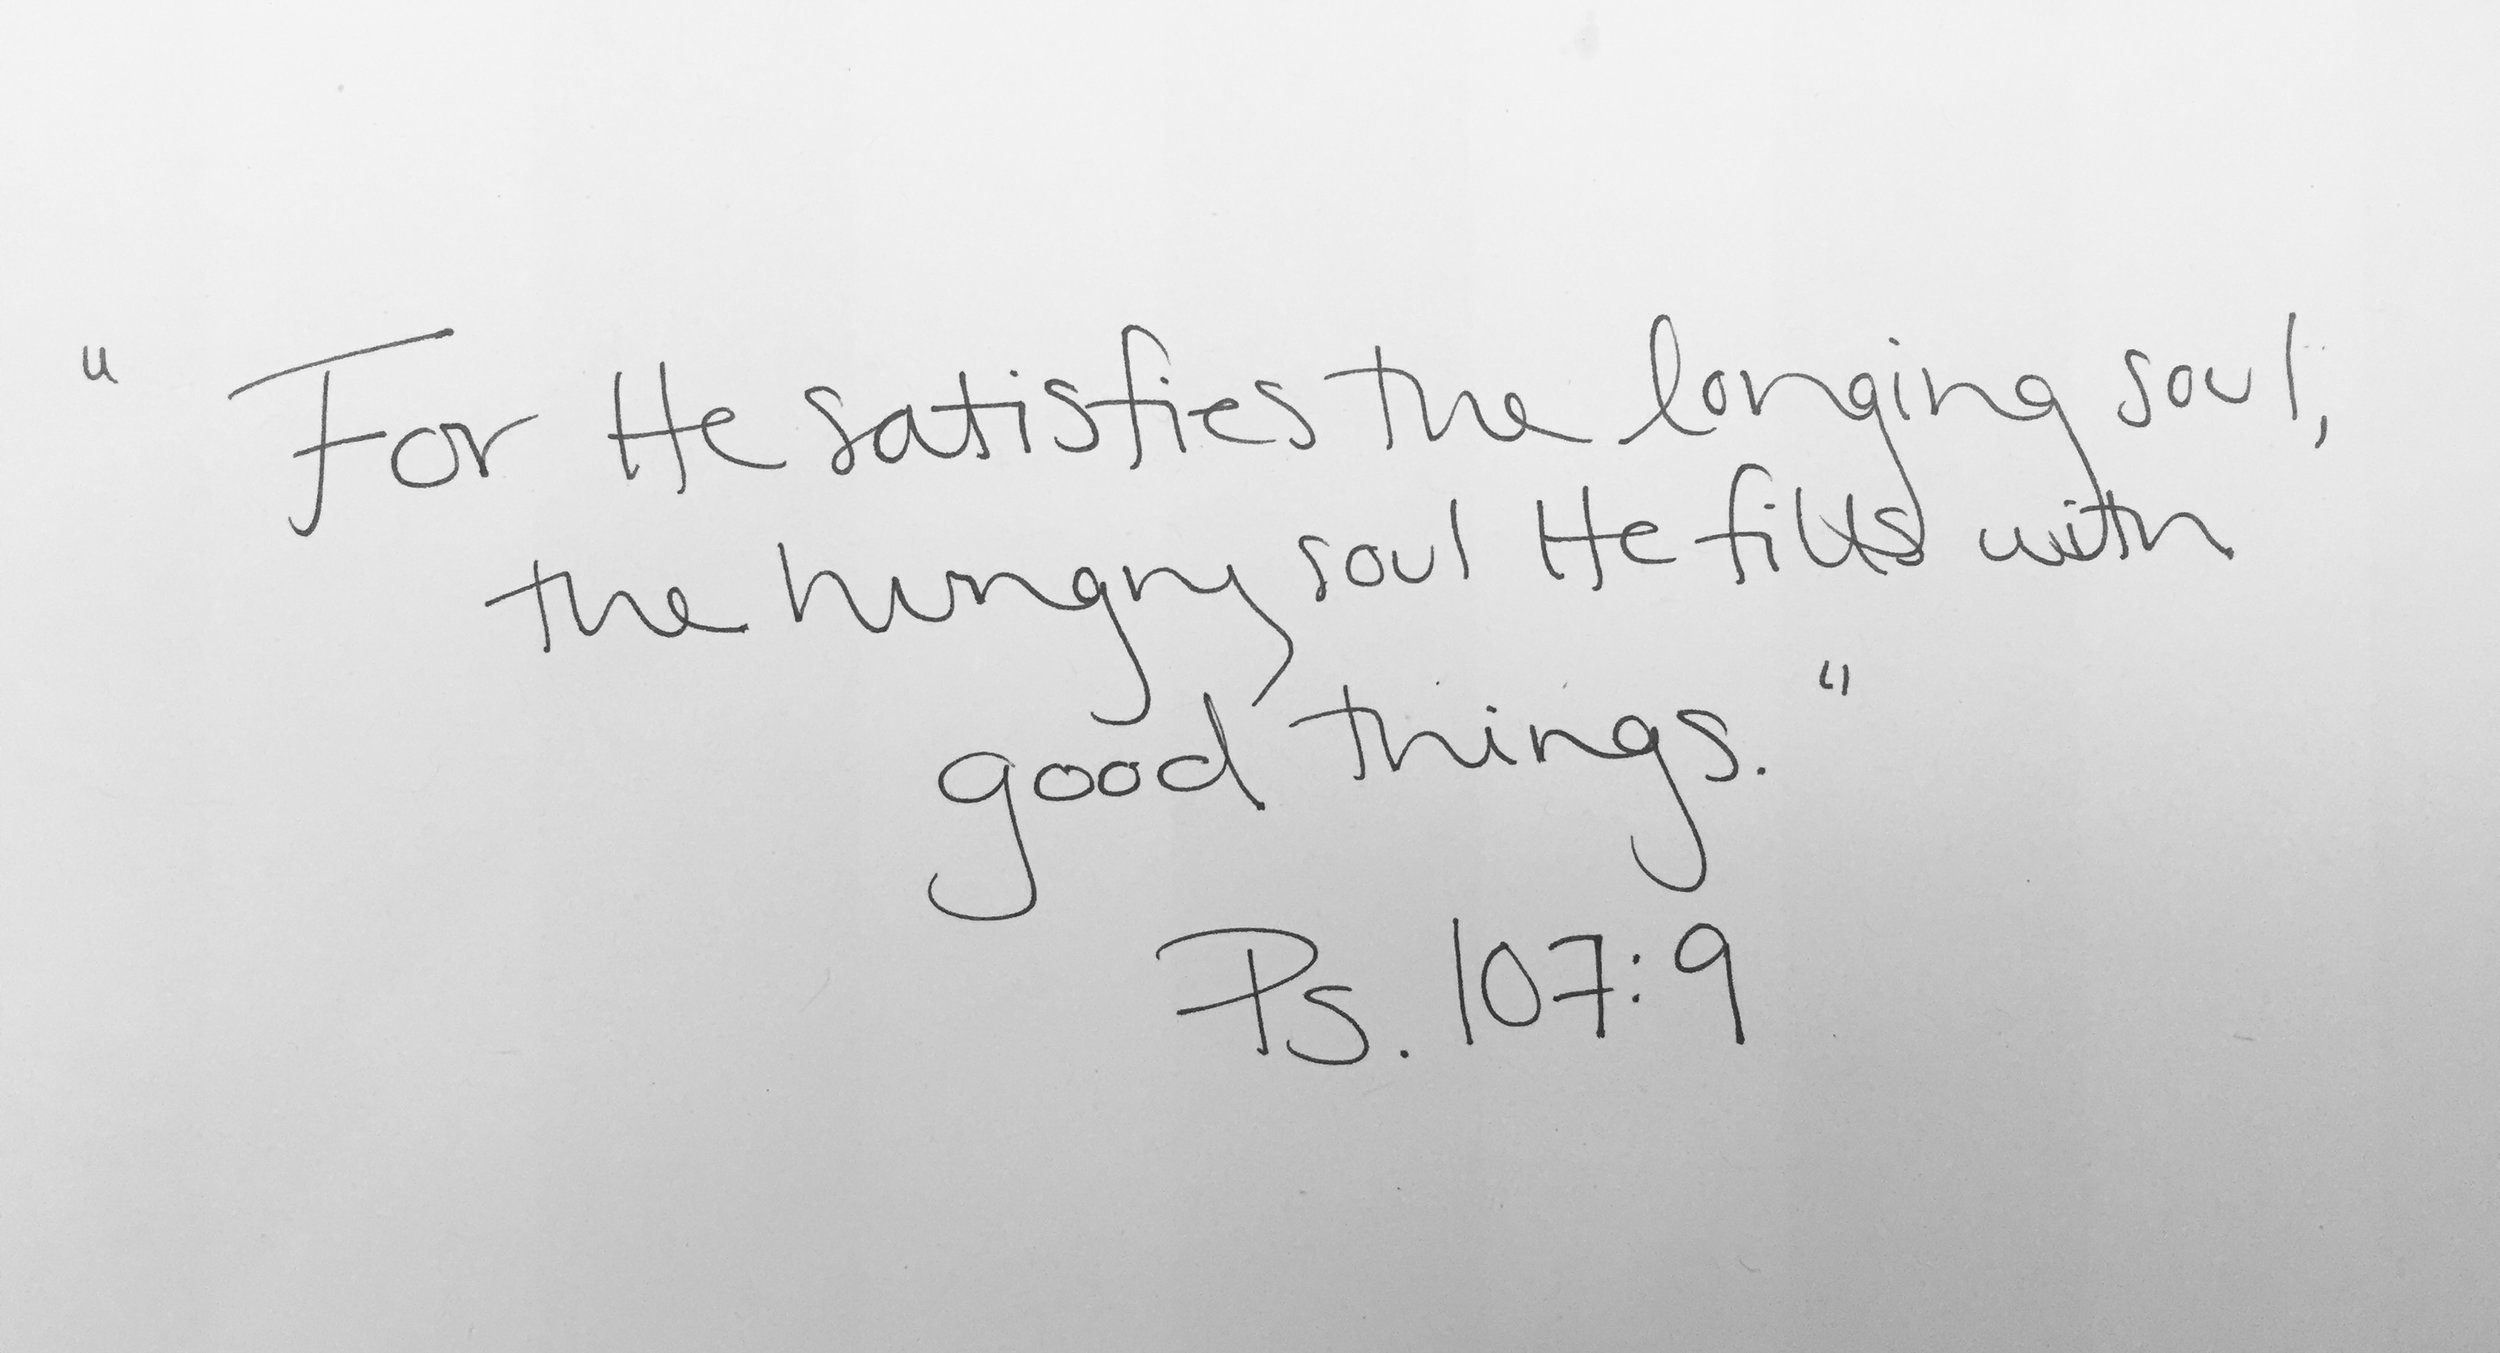 "For He satisfies the longing soul,
the hungry soul He fills with
good things."
Ps. 107:9